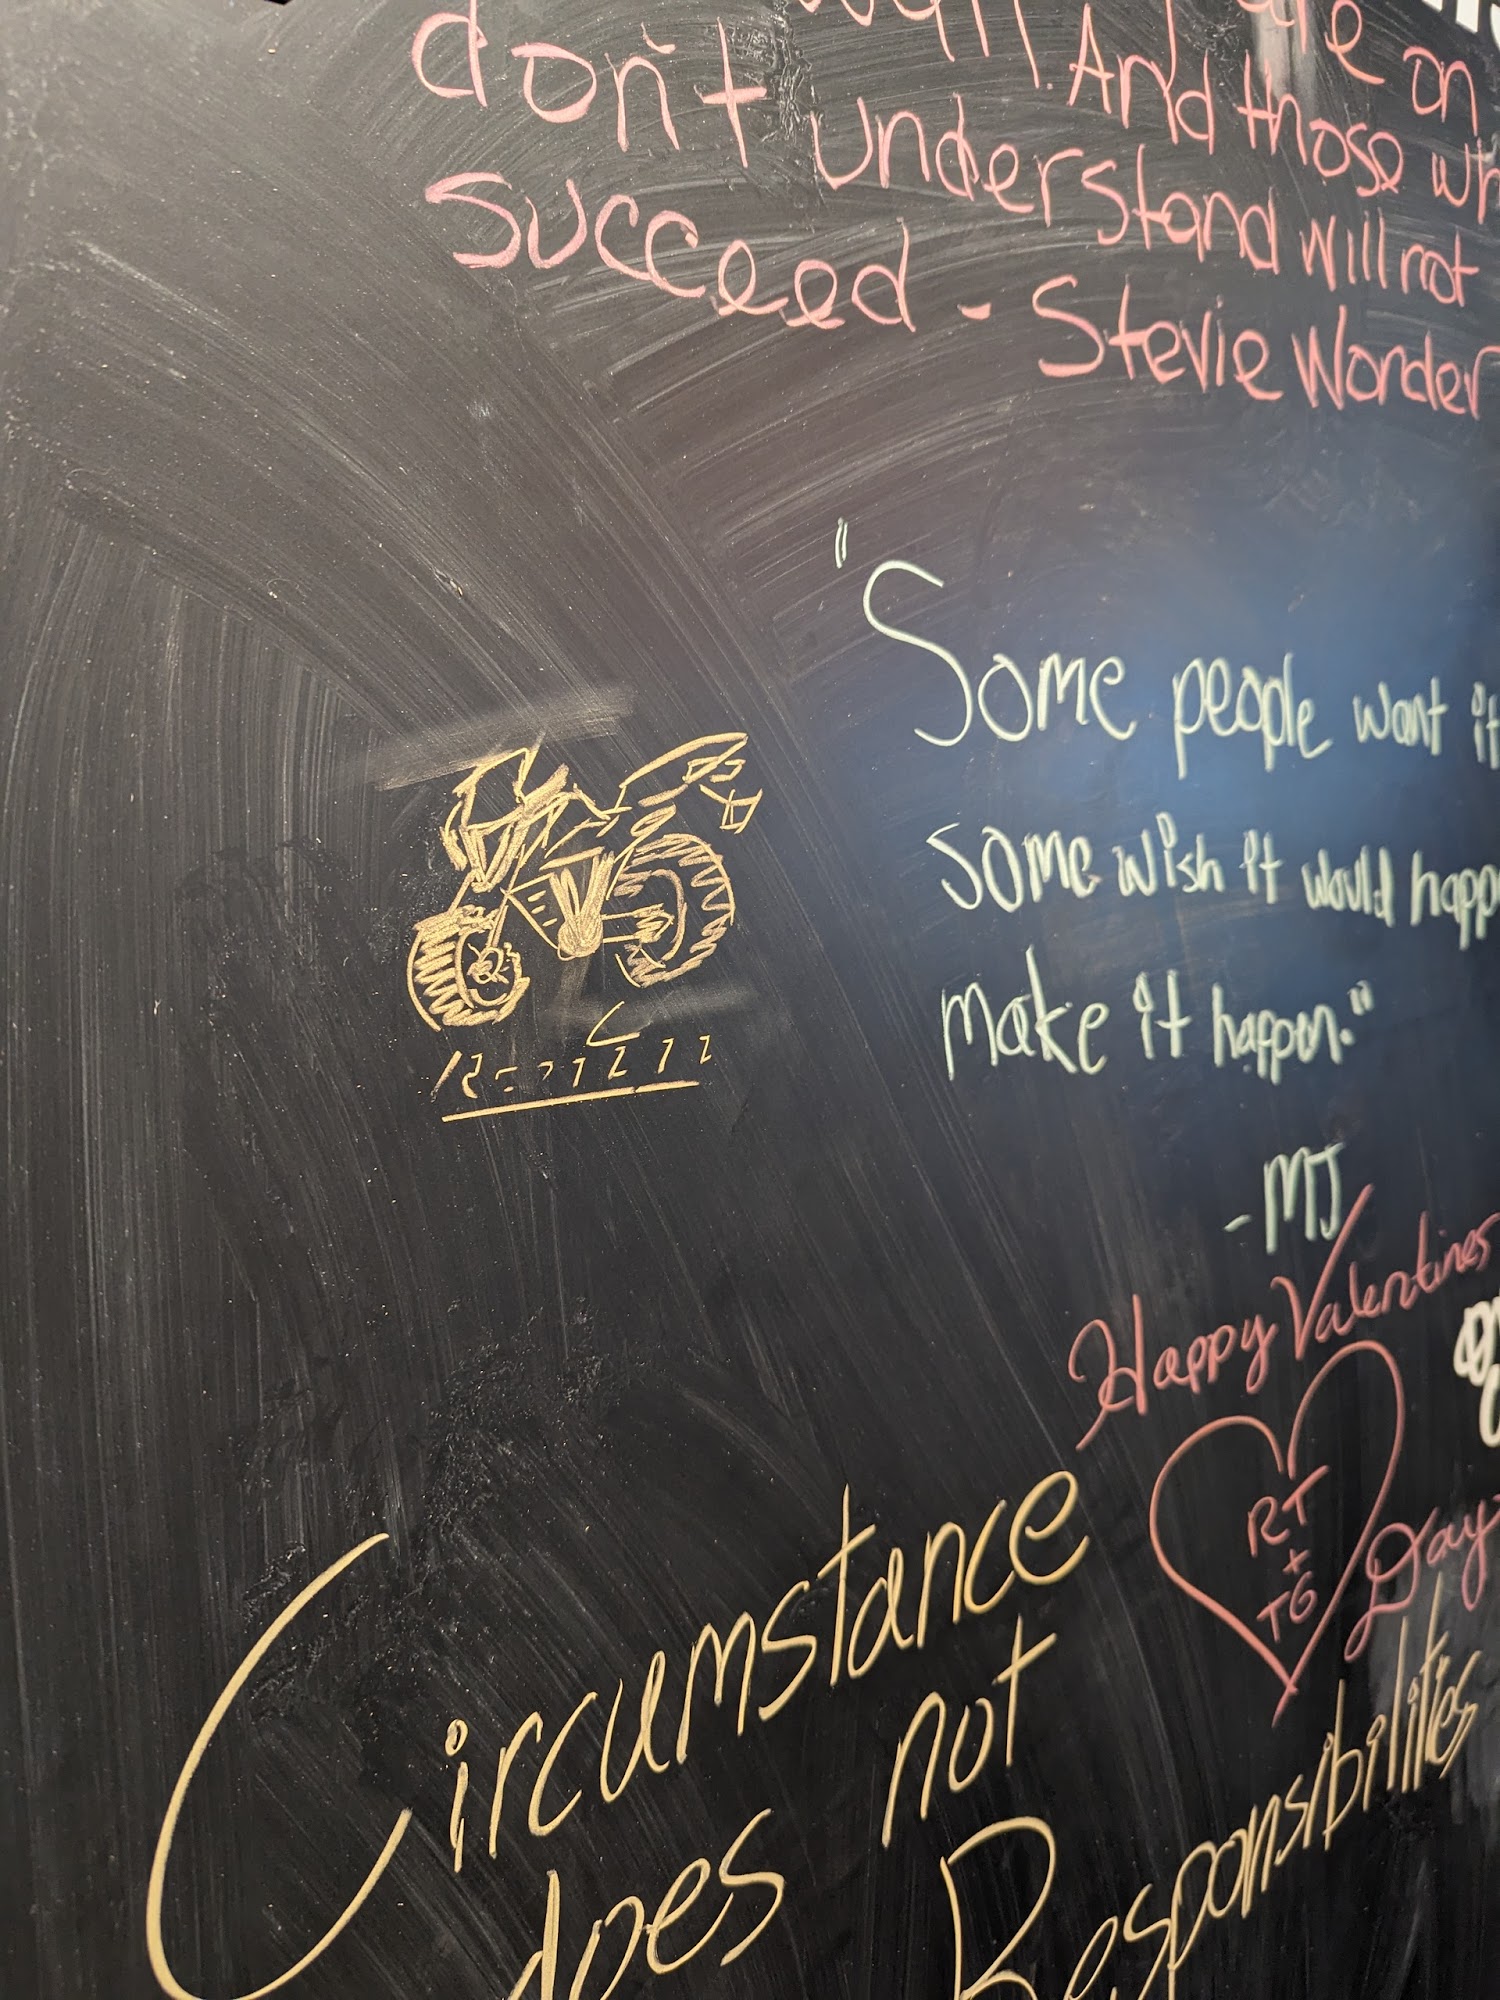 on
don't understand will not
And those
succeed - Stevie Wonder
"Some people want it
some wish it would happ
make it happen."
- MJ
Happy Valentines
Day
RT
+
TG
Circumstance
does not
Responsibilities